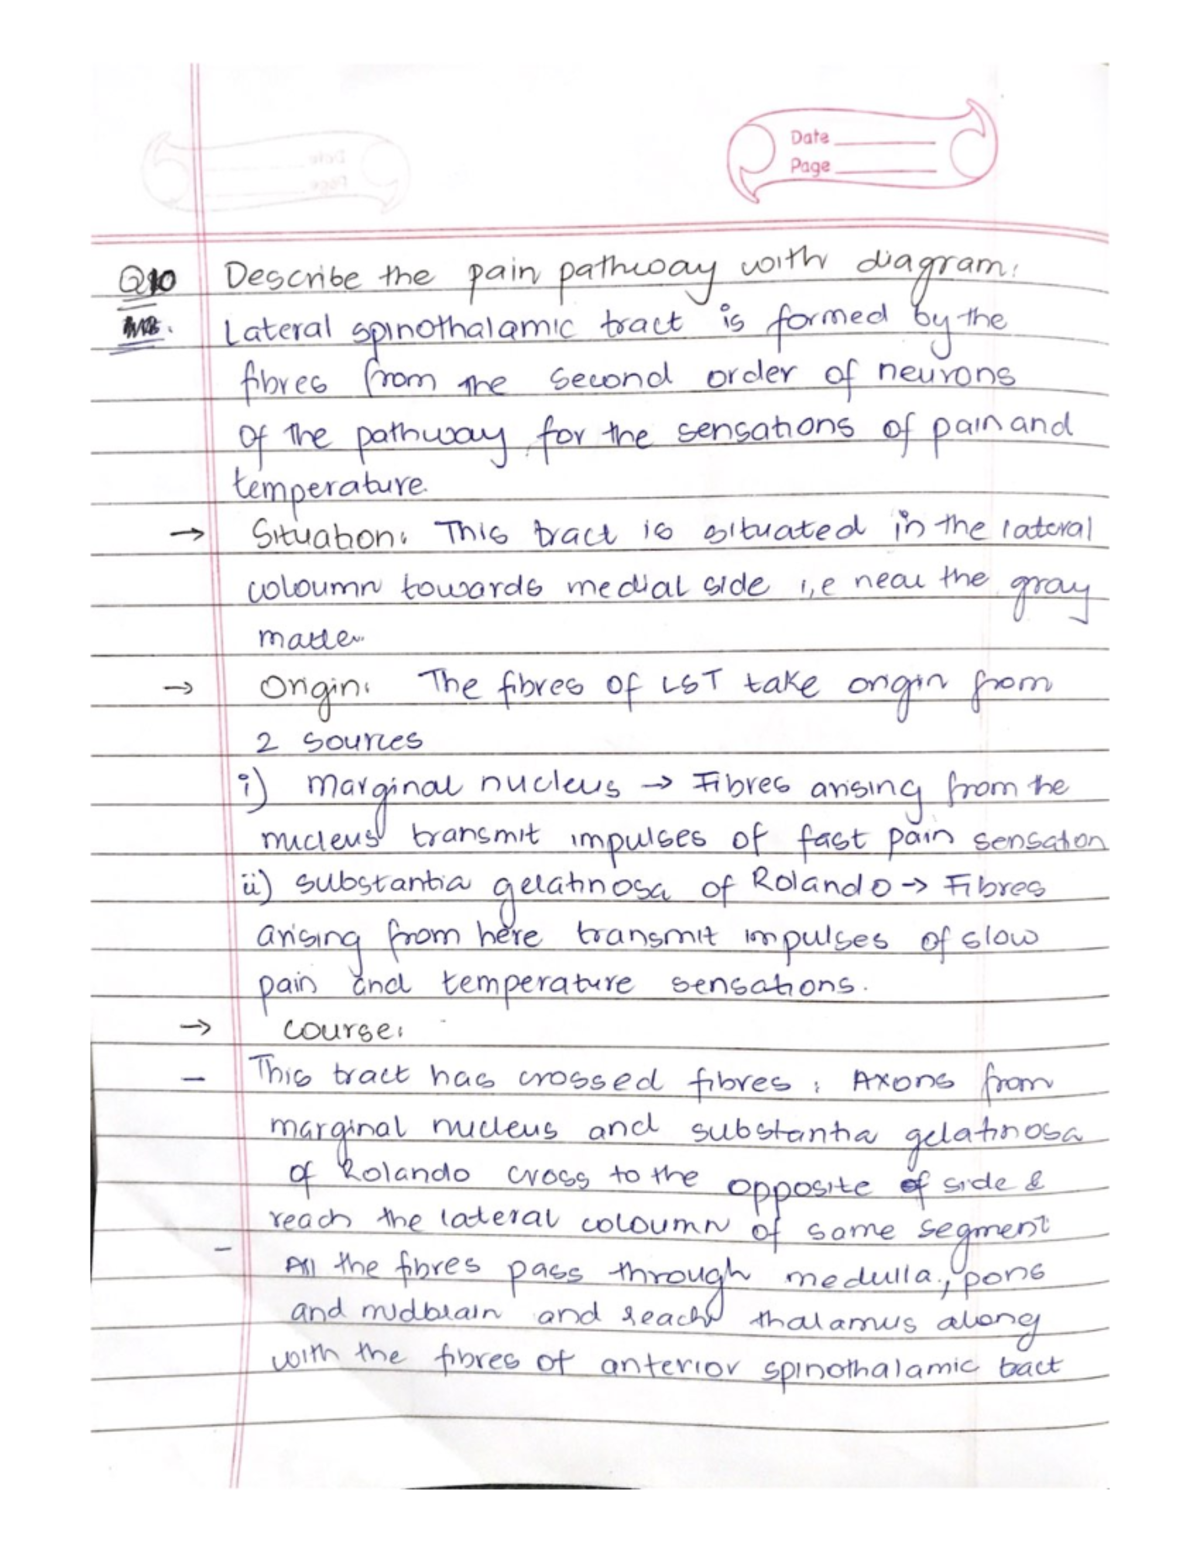 Date
Page
Q10 Describe the pain pathway with diagram.
Lateral spinothalamic tract is formed by the
fibres from the second order of neurons
of the pathway for the sensations of pain and
temperature.
→ Situation: This tract is situated in the lateral
coloumn towards medial side i,e near the gray
matter
→ Origin: The fibres of LST take origin from
2 sources
i) marginal nucleus → Fibres arising from the
nucleus transmit impulses of fast pain sensation
ii) substantia gelatinosa of Rolando → Fibres
arising from here transmit impulses of slow
pain and temperature sensations.
→ course:
- This tract has crossed fibres: Axons from
marginal nucleus and substantia gelatinosa
of Rolando cross to the opposite of side &
reach the lateral coloumn of same segment
- All the fibres pass through medulla, pons
and midbrain and reach thalamus along
with the fibres of anterior spinothalamic tract